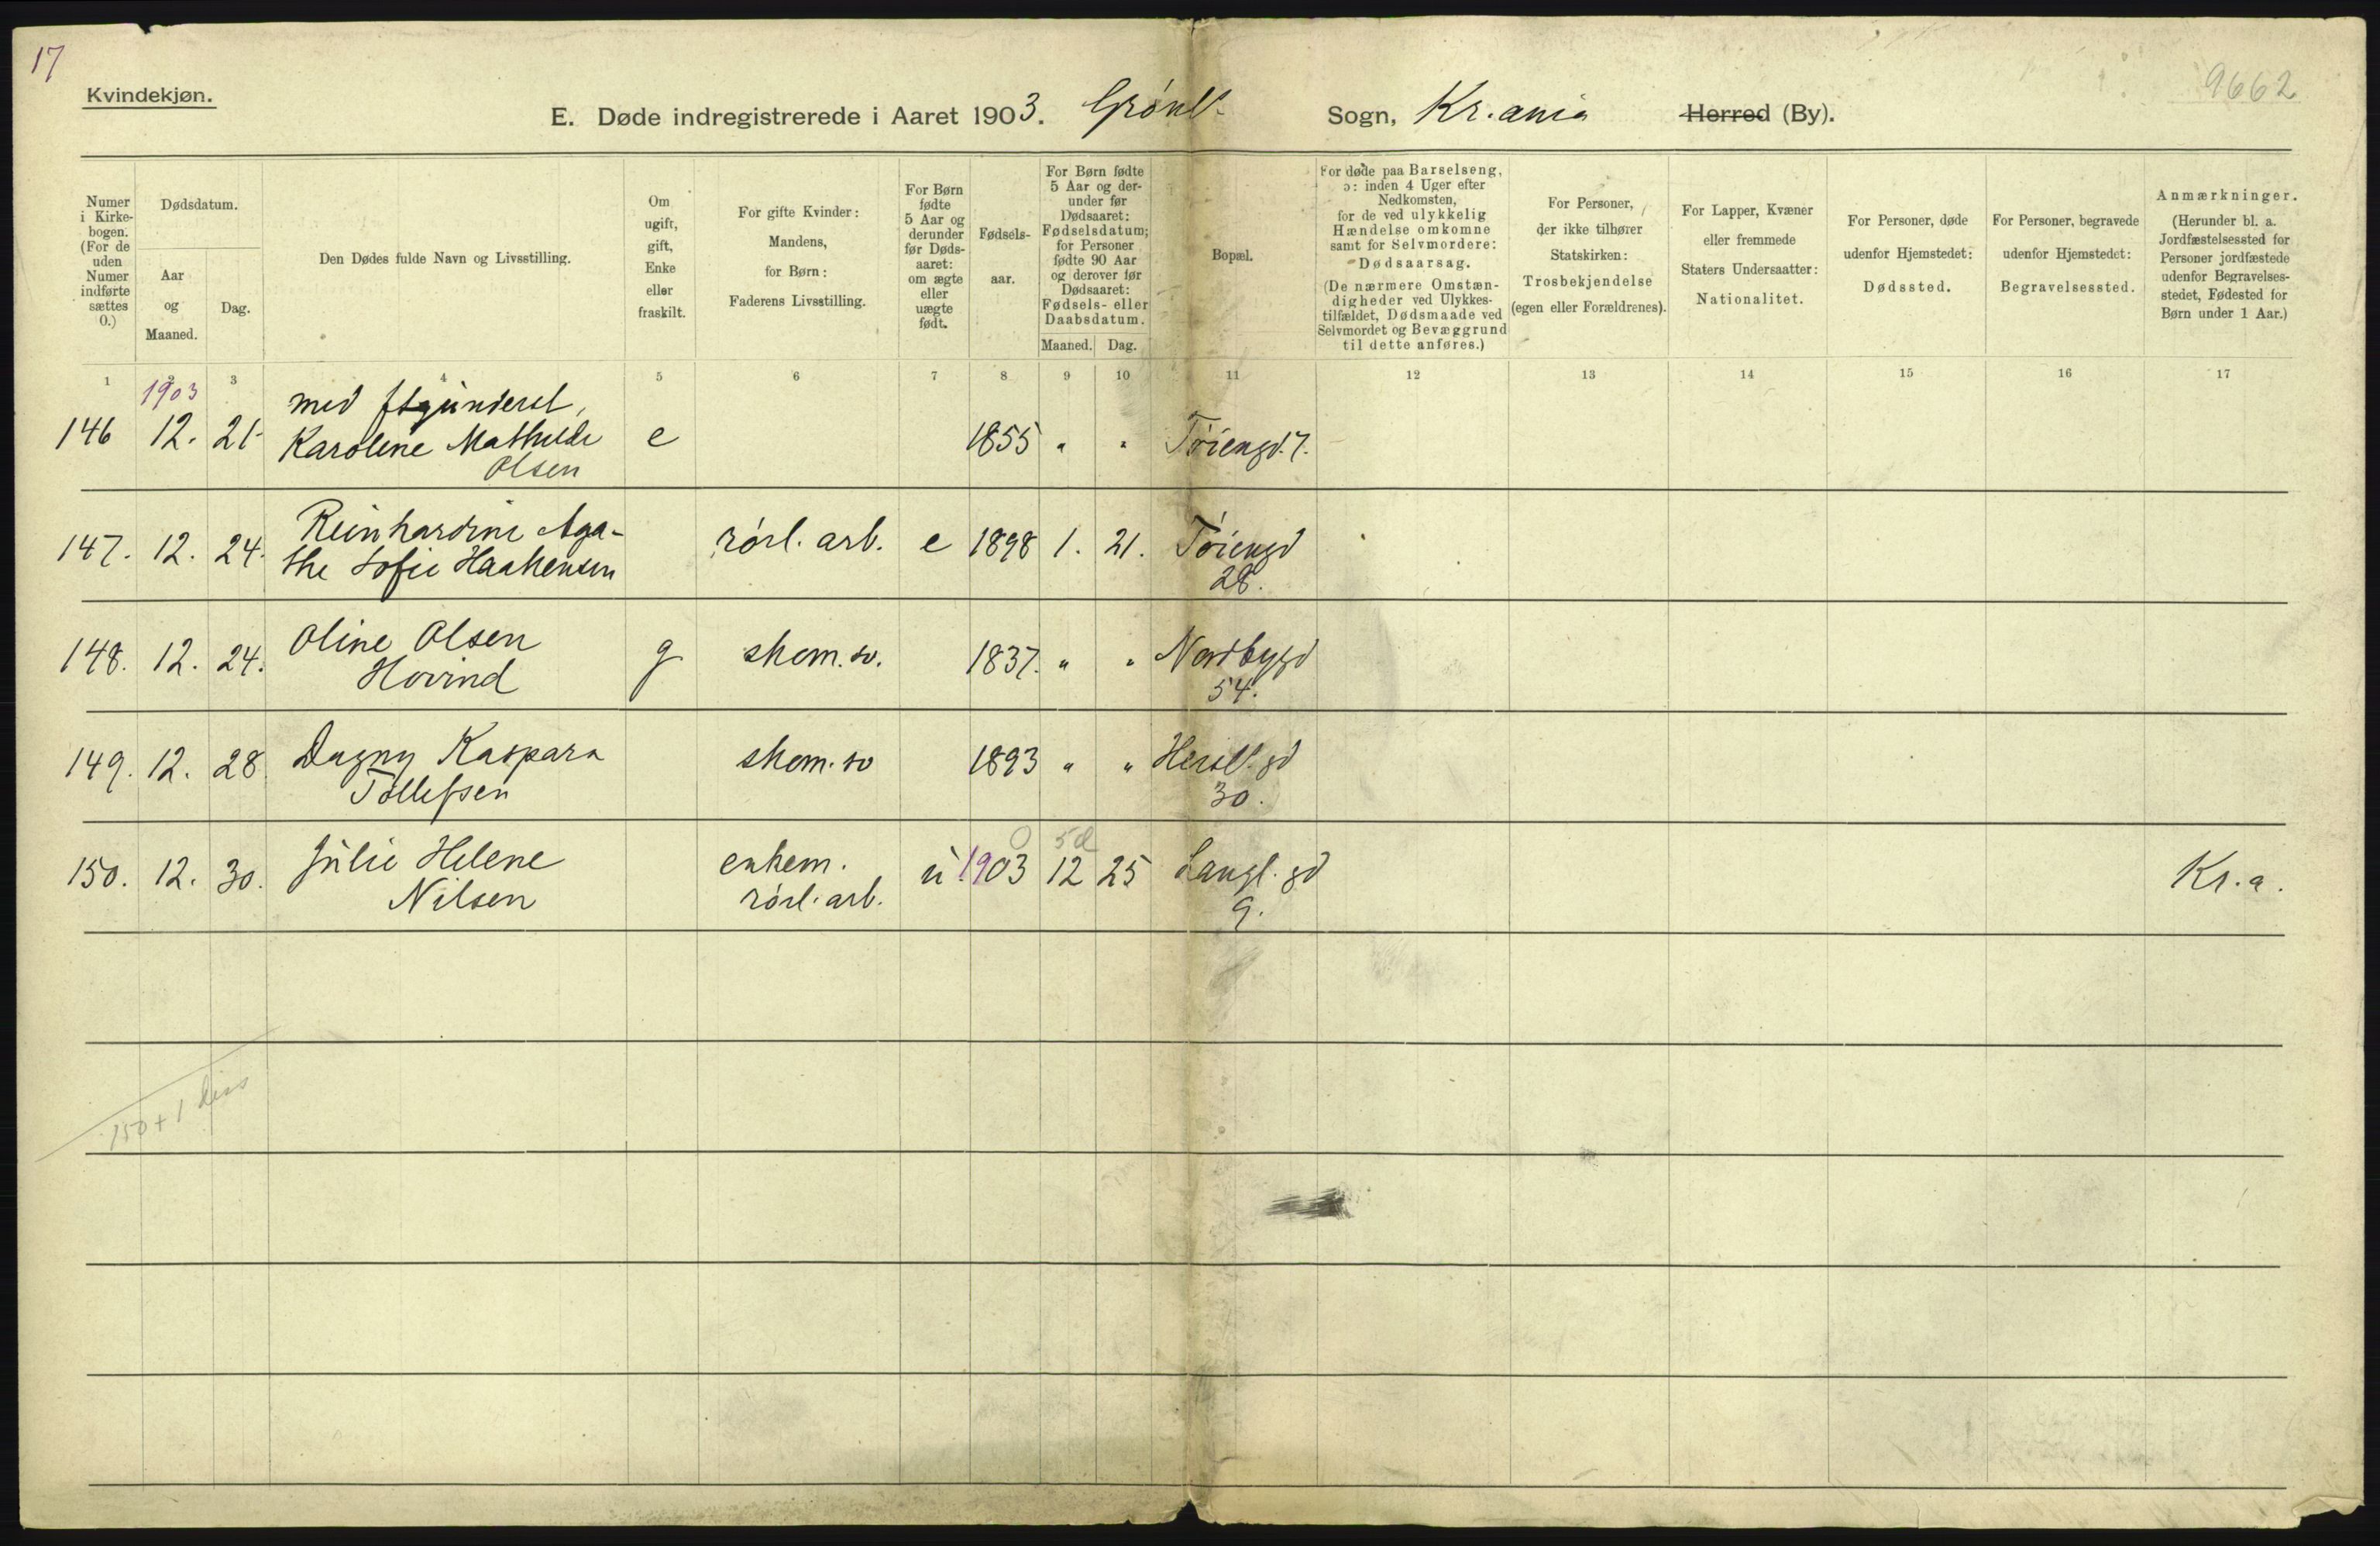 17
Kvindekjøn.
9662
E. Døde indregistrerede i Aaret 1903. Grønl. Sogn, Kr.ania Herred (By).
Numer i Kirke-bogen. (For de uden Numer indførte sættes 0.)
Dødsdatum.
Aar og Maaned.
Dag.
Den Dødes fulde Navn og Livsstilling.
Om ugift, gift, Enke eller fraskilt.
For gifte Kvinder: Mandens, for Børn: Faderens Livsstilling.
For Børn fødte 5 Aar og derunder før Døds-aaret: om ægte eller uægte født.
Fødsels-aar.
For Børn fødte 5 Aar og der-under før Dødsaaret: Fødselsdatum; for Personer fødte 90 Aar og derover før Dødsaaret: Fødsels- eller Daabsdatum.
Maaned. Dag.
Bopæl.
For døde paa Barselseng, ɔ: inden 4 Uger efter Nedkomsten, for de ved ulykkelig Hændelse omkomne samt for Selvmordere: Dødsaarsag. (De nærmere Omstæn-digheder ved Ulykkes-tilfældet, Dødsmaade ved Selvmordet og Bevæggrund til dette anføres.)
For Personer, der ikke tilhører Statskirken: Trosbekjendelse (egen eller Forældrenes).
For Lapper, Kvæner eller fremmede Staters Undersaatter: Nationalitet.
For Personer, døde udenfor Hjemstedet: Dødssted.
For Personer, begravede udenfor Hjemstedet: Begravelsessted.
Anmærkninger. (Herunder bl. a. Jordfæstelsessted for Personer jordfæstede udenfor Begravelses-stedet, Fødested for Børn under 1 Aar.)
1 2 3 4 5 6 7 8 9 10 11 12 13 14 15 16 17
1903
med
146 12. 21 Karoline Mathilde e 1855 " " Tøiengd. 7.
Olsen
147. 12. 24. Reinhardine Aga- rørl. arb. e 1898 1. 21. Tøiengd
the Sofie Haakensen 28.
148. 12. 24. Oline Olsen g skom. sv. 1837. " " Nordbygd
Hovind 54.
149. 12. 28. Dagny Kaspara skom. sv 1893 " " Hersl. gd
Tollefsen 30.
0 5d
150. 12. 30. Julie Helene enkem. u. 1903 12 25 Langl. gd Kr.a.
Nilsen rørl. arb. 9.
150 + 1